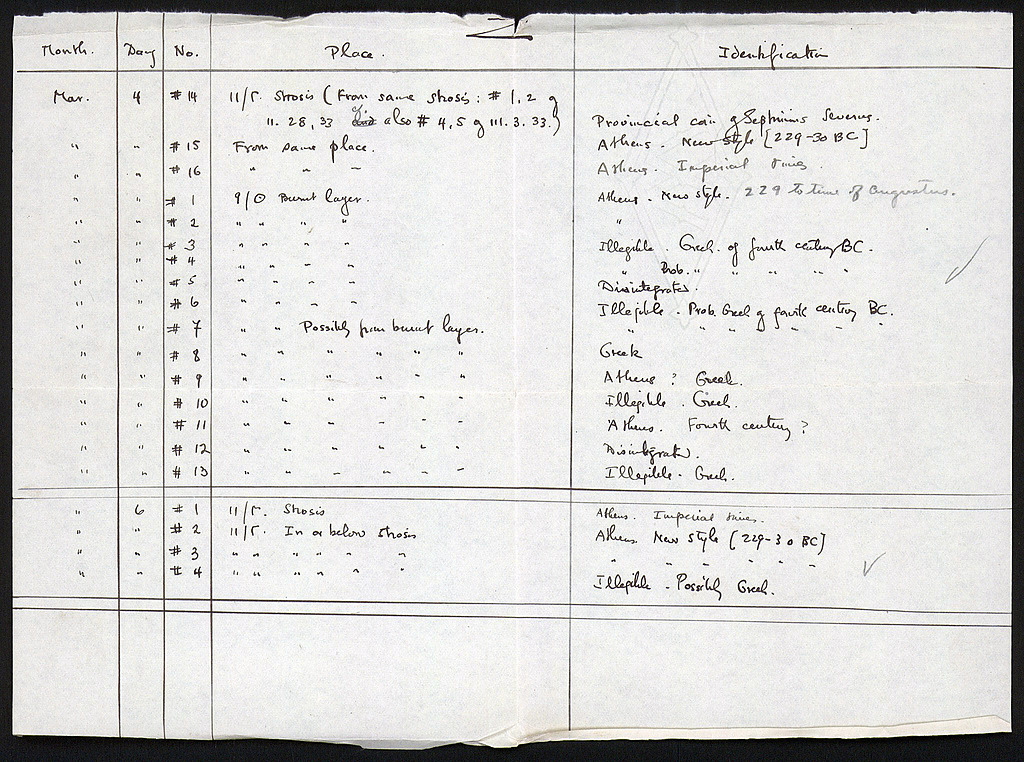 Month. Day No. Place. Identification
Mar. 4 #14 11/Γ. Strosis (From same strosis: #1, 2 of
11. 28, 33 also #4, 5 of 111. 3. 33.) Provincial coin of Septimius Severus.
" " #15 From same place. Athens. New style [229-30 BC]
" " #16 " " " Athens. Imperial times
" " #1 9/Θ Burnt layer. Athens. New style. 229 to time of Augustus.
" " #2 " " " " "
" " #3 " " " " Illegible. Greek of fourth century BC.
" " #4 " " " " " Prob. " " " " "
" " #5 " " " " Disintegrated.
" " #6 " " " " Illegible. Prob. Greek of fourth century BC.
" " #7 " " Possibly from burnt layer. " " " " " " "
" " #8 " " " " " " Greek
" " #9 " " " " " " Athens? Greek.
" " #10 " " " " " " Illegible. Greek.
" " #11 " " " " " " Athens. Fourth century?
" " #12 " " " " " " Disintegrated.
" " #13 " " " " " " Illegible. Greek.
" 6 #1 11/Γ. Strosis Athens. Imperial times.
" " #2 11/Γ. In or below strosis Athens. New style [229-30 BC]
" " #3 " " " " " " " " " " "
" " #4 " " " " " Illegible. Possibly Greek.